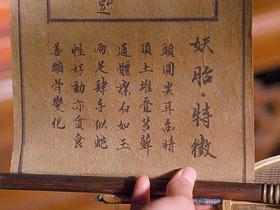 妖胎·特徵
頭圓尖耳時
頂土堆疊苔蘚
通體潔白如玉
兩足肆手似蛇
性好動亦貪食
善縮骨變化